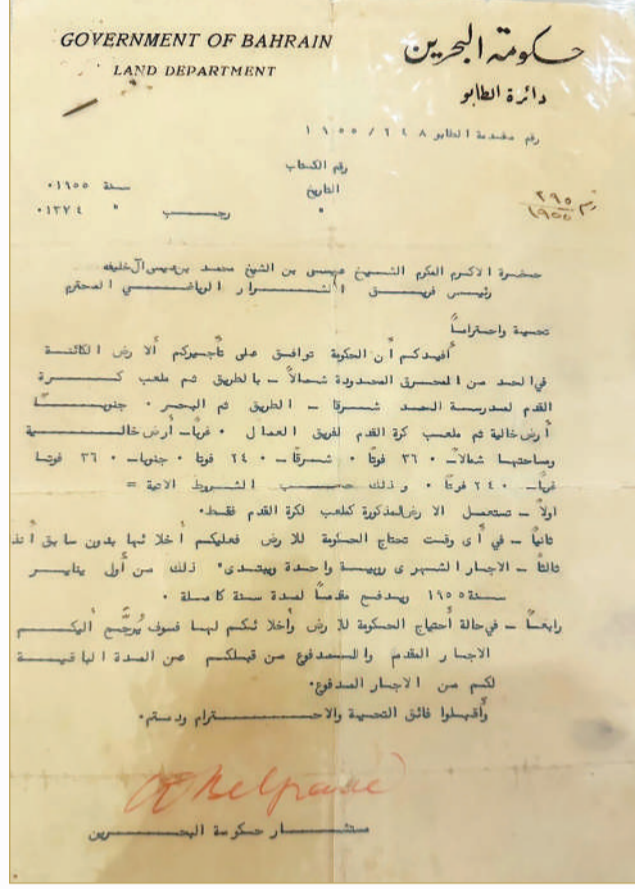 GOVERNMENT OF BAHRAIN
LAND DEPARTMENT
حكومة البحرين
دائرة الطابو
رقم مقدمة الطابو ٢٤٨ / ١٩٥٥
رقم الكتاب
التاريخ سنة ١٩٥٥٠
" رجب " ١٣٧٤٠
٢٩٥
١٩٥٥
حضرة الاكرم المكرم الشيخ عيسى بن الشيخ محمد بن عيسى آل خليفه
رئيس فريق الشرار الرياضي المحترم
تحية واحتراماً
أفيدكم أن الحكومة توافق على تأجيركم ألا رض الكائنة
في الحد من المحرق المحدودة شمالاً – بالطريق ثم ملعب كرة
القدم لمدرسة الحد شرقا – الطريق ثم البحر ٠ جنوباً
أرض خالية ثم ملعب كرة القدم لفريق العمال ٠ غرباً– أرض خالية
ومساحتها شمالاً– ٣٦٠ فوتاً ٠ شرقاً– ٢٤٠ فوتا ٠ جنوبا– ٣٦٠ فوتا
غرباً– ٢٤٠ فوتاً ٠ وذلك حسب الشروط الاتية =
اولاً – تستعمل الا رض المذكورة كملعب لكرة القدم فقط٠
ثانياً – في أى وقت تحتاج الحكومة للا رض فعليكم أخلا ئها بدون سابق
ثالثاً – الاجار الشهرى روبية واحدة ويبتدى ذلك من أول يناير
سنة ١٩٥٥ ويدفع مقدماً لمدة سنة كاملة ٠
رابعاً – في حالة أحتياج الحكومة للا رض وأخلا ئكم لها فسوف يُرجَّع أليكم
الاجار المقدم والمدفوع من قبلكم عن المدة الباقية
لكم من الاجار المدفوع٠
وأقبلوا فائق التحية والاحترام ودمتم٠
C Belgrave
مستشار حكومة البحرين